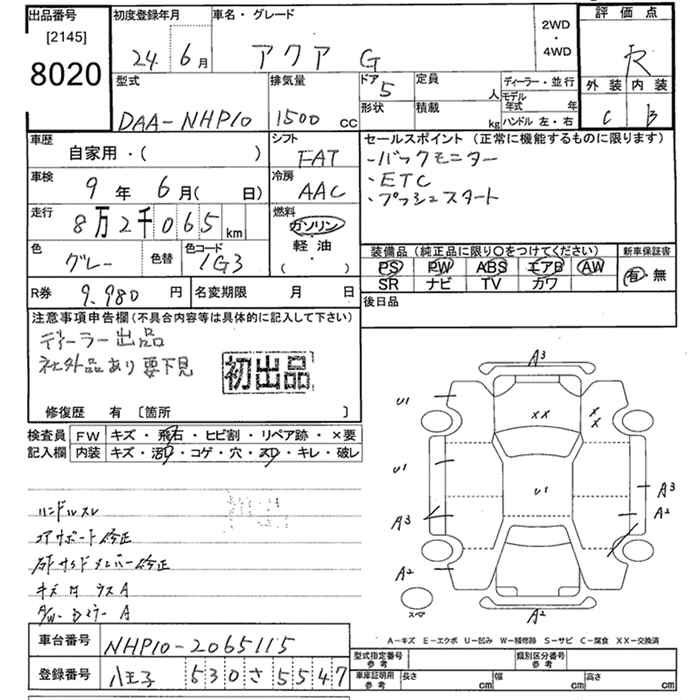 出品番号
[2145]
8020
初度登録年月
24. 6月
車名・グレード
アクア G
2WD
・
4WD
評価点
R
外装 内装
C B
型式
DAA-NHP10
排気量
1500 CC
ドア 5
形状
定員 人
積載 kg
ディーラー・並行
モデル年式 年
ハンドル 左・右
車歴
自家用・( )
シフト
FAT
車検
9年 6月( 日)
冷房
AAC
走行
8万2千065km
燃料
ガソリン
軽油
( ・ )
色
グレー
色替
色コード
1G3
セールスポイント (正常に機能するものに限ります)
・バックモニター
・ETC
・プッシュスタート
装備品 (純正品に限り○をつけてください)
PS PW ABS エアB AW
SR ナビ TV カワ
新車保証書
有・無
R券 9.980円
名変期限 月 日
後日品
注意事項申告欄(不具合内容等は具体的に記入して下さい)
ディーラー出品
社外品あり要下見
初出品
修復歴 有 〔箇所 〕
検査員記入欄
FW キズ・飛石・ヒビ割・リペア跡・×要
内装 キズ・汚・コゲ・穴・スレ・キレ・破レ
ハンドルスレ
コアサポート修正
キズ
A3
U1
XX
XX
U1
U1
A3
A3
A2
A2
A2
スペア
A-キズ E-エクボ U-凹み W-補修跡 S-サビ C-腐食 XX-交換済
車台番号 NHP10-2065115
登録番号 八王子 530さ5547
型式指定番号 参考
類別区分番号 参考
車庫証明用 参考 長さ cm 幅 cm 高さ cm